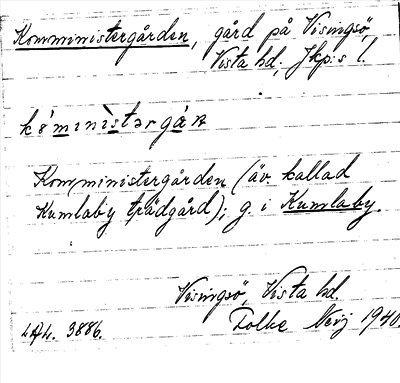 Komministergården, gård på Visingsö,
Vista hd, Jkp:s l.
Komministergården (äv. kallad
Kumlaby trädgård); g. i Kumlaby.
Visingsö, Vista hd.
3886. Folke Neij 1940.